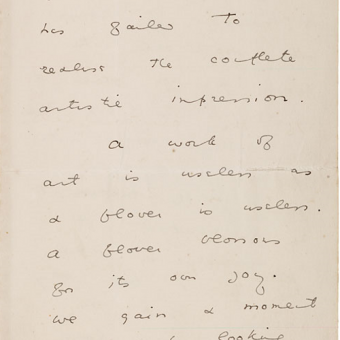 has failed to
realise the complete
artistic impression.
A work of
art is useless as
a flower is useless.
A flower blossoms
for its own joy.
We gain a moment
looking